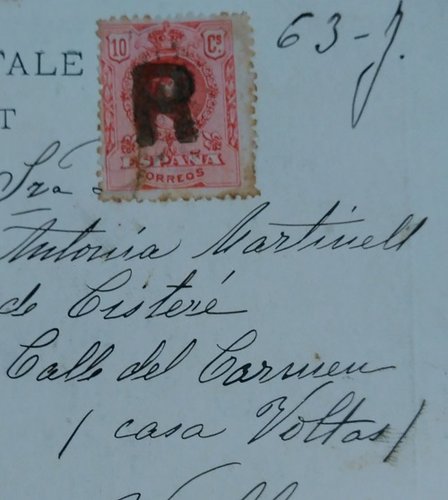 63-J.
10 Cs
TALE
R
T
ESPAÑA
CORREOS
Sra
Antonia Martinell
de Cisteré
Calle del Carmen
(casa Voltas)